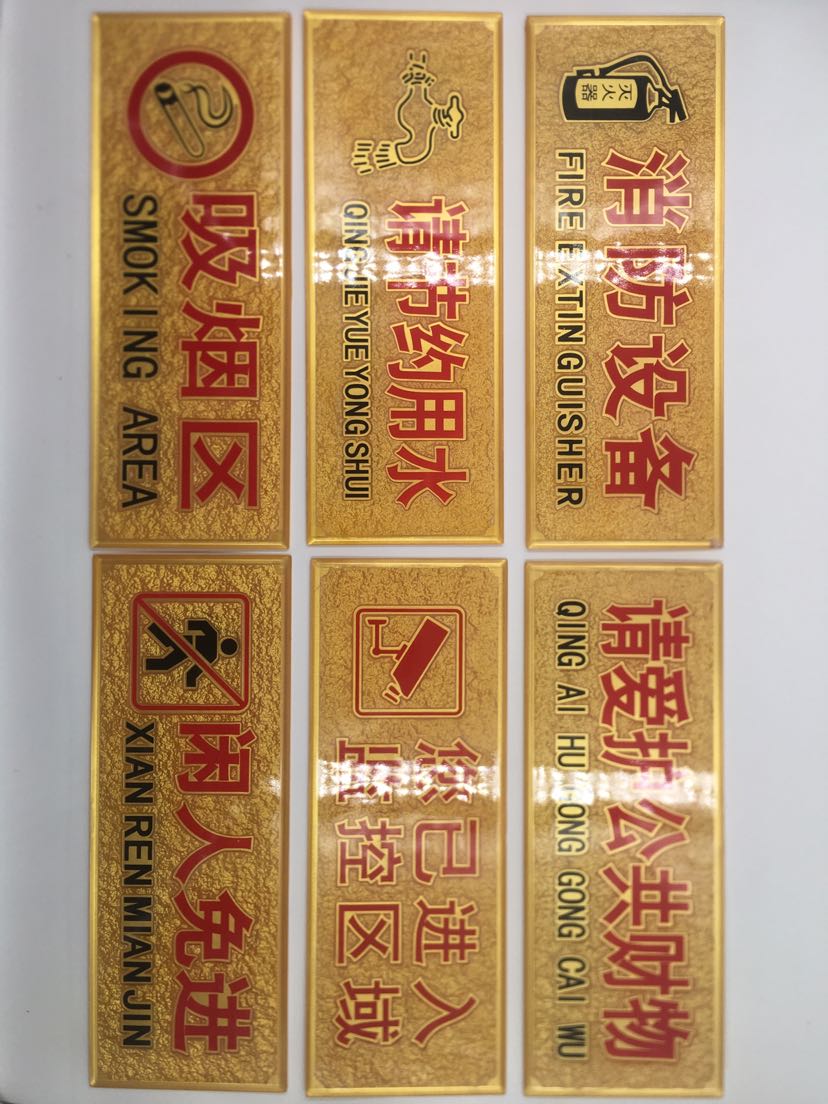 灭火器
消防设备
FIRE EXTINGUISHER
请爱护公共财物
QING AI HU GONG GONG CAI WU
请节约用水
QING JIE YUE YONG SHUI
您已进入
监控区域
吸烟区
SMOKING AREA
闲人免进
XIAN REN MIAN JIN